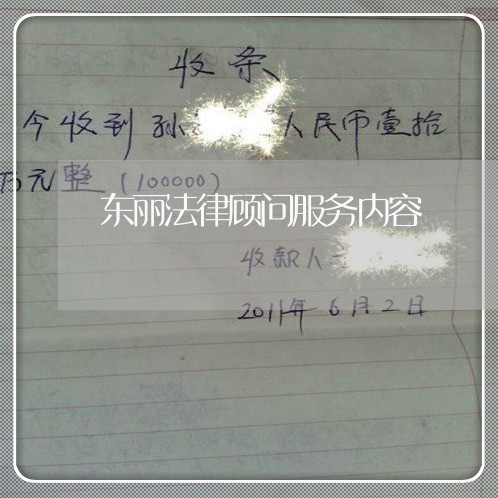 收条
今收到孙 人民币壹拾
万元整（100000）
东丽法律顾问服务内容
收款人
2011年6月2日